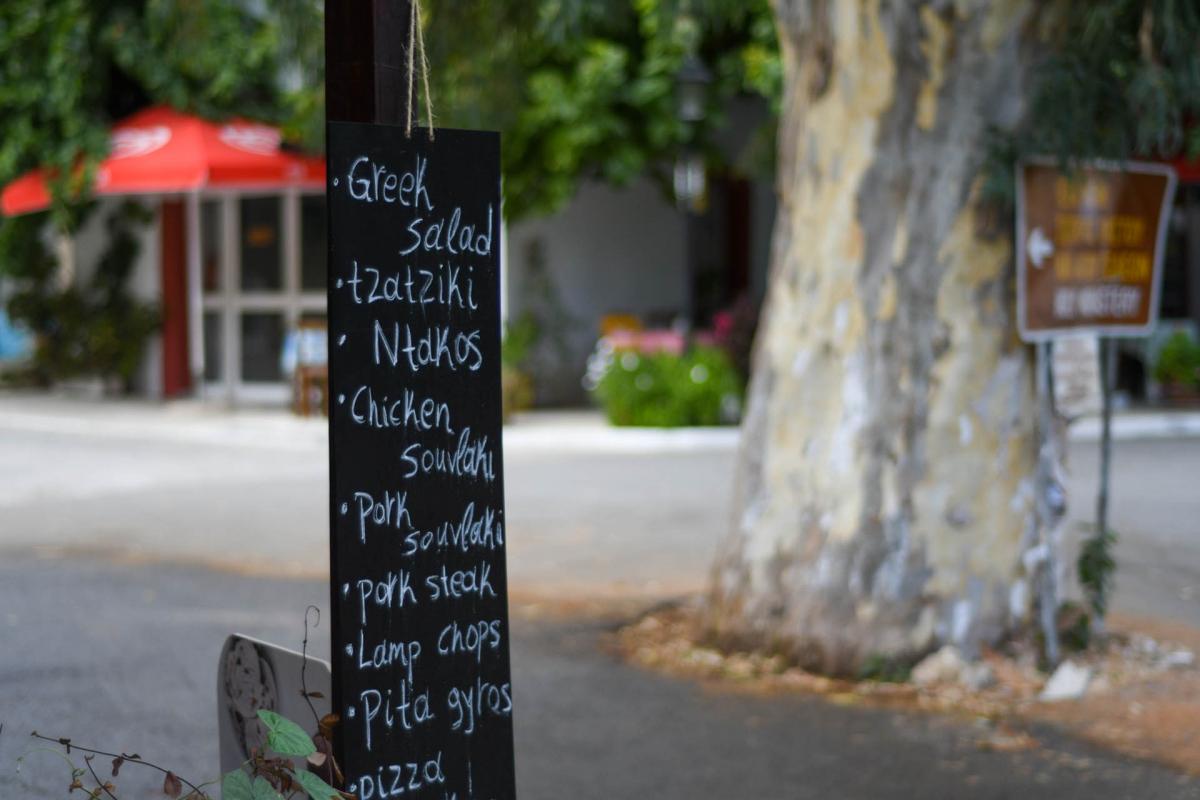 · Greek
salad
· tzatziki
· Ntakos
· Chicken
souvlaki
· pork
souvlaki
· pork steak
· Lamp chops
· Pita gyros
· pizza